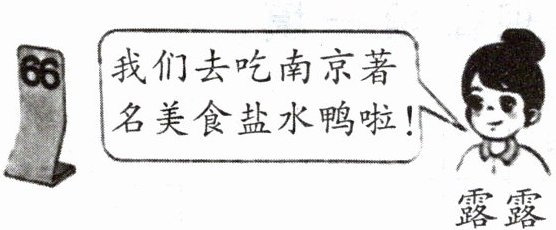 66
我们去吃南京著
名美食盐水鸭啦!
露露